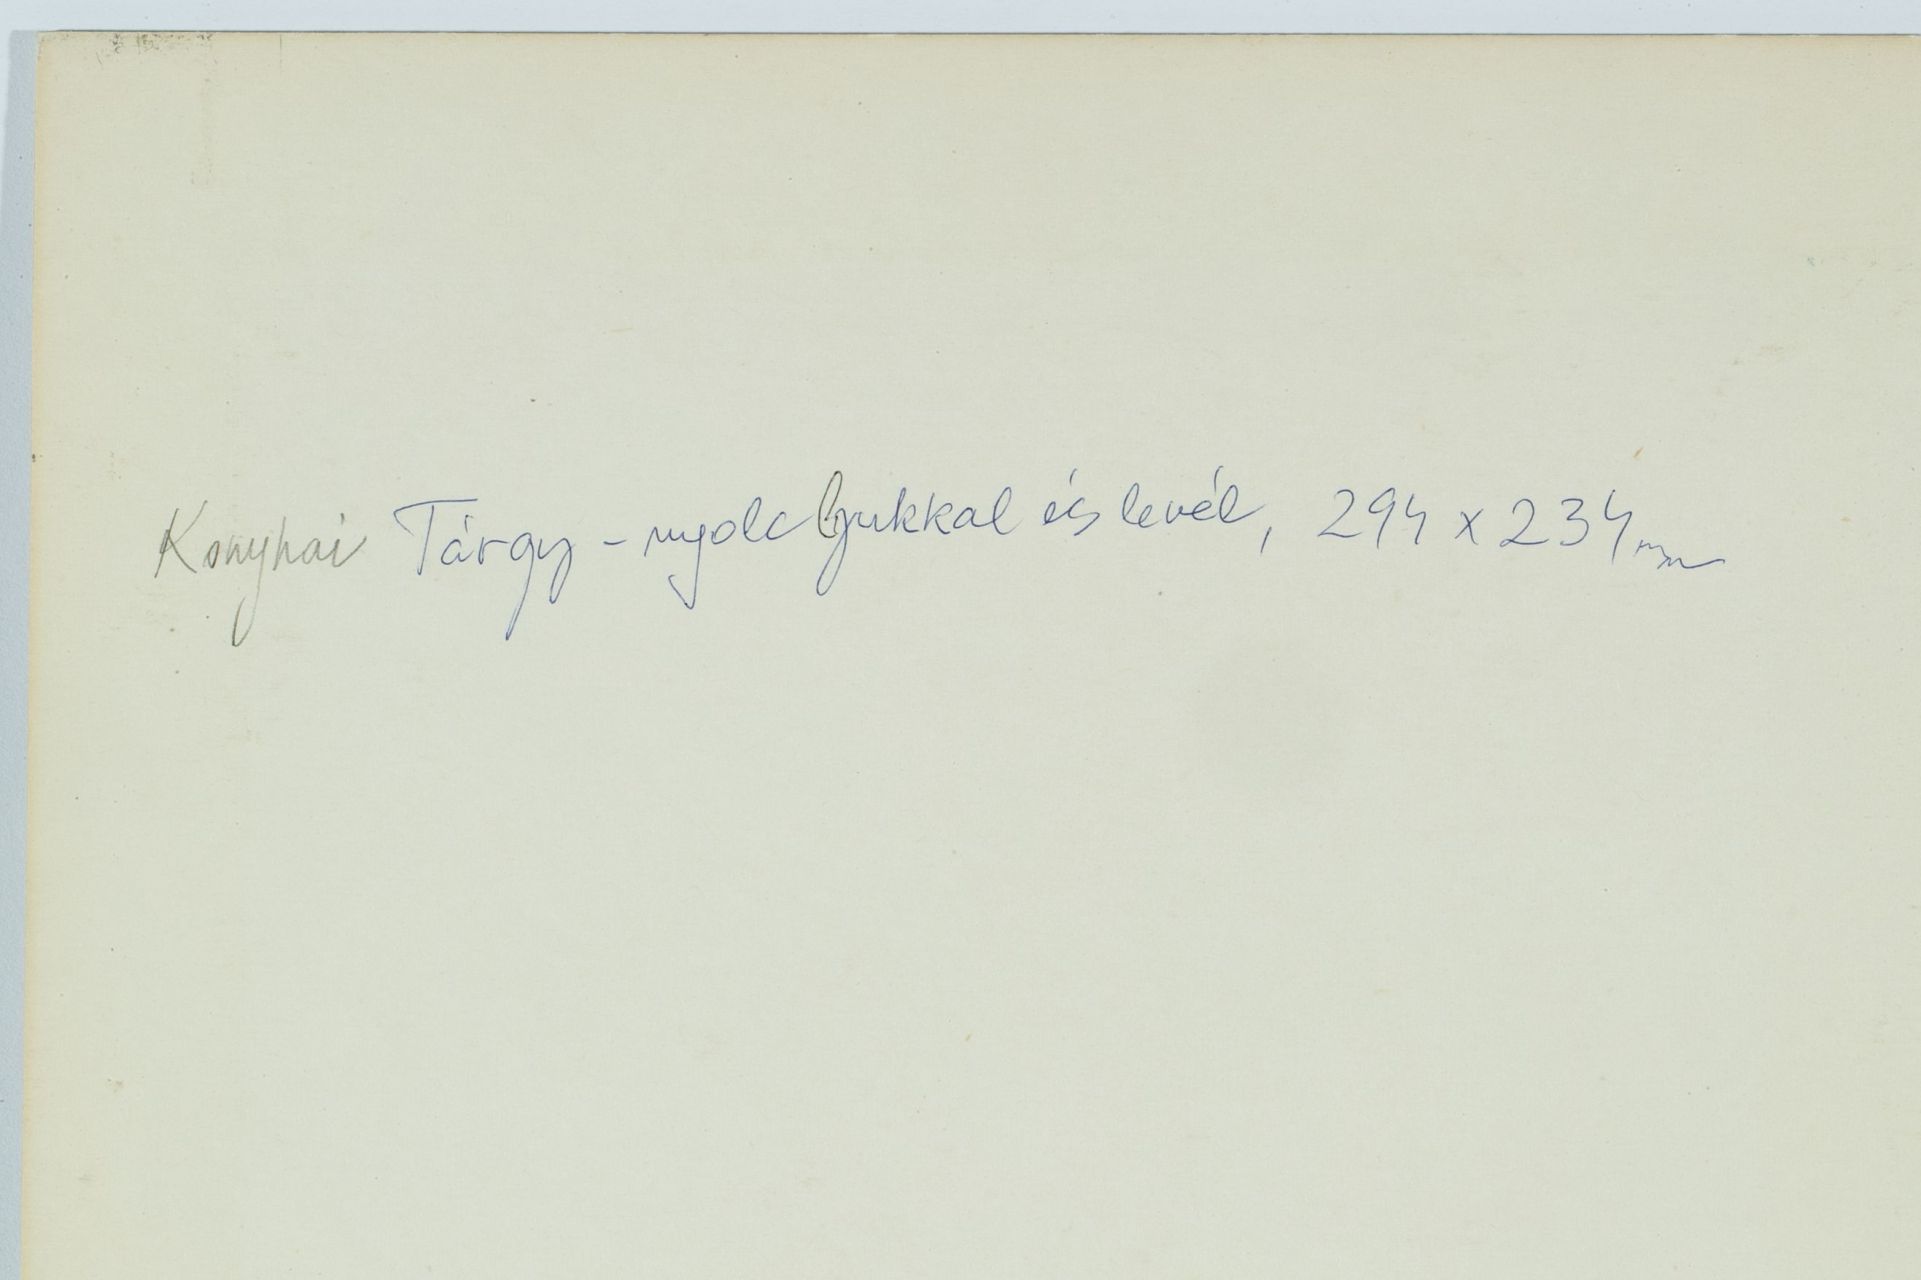 Konyhai Tárgy - nyolc lyukkal és levél, 294 x 234 mm